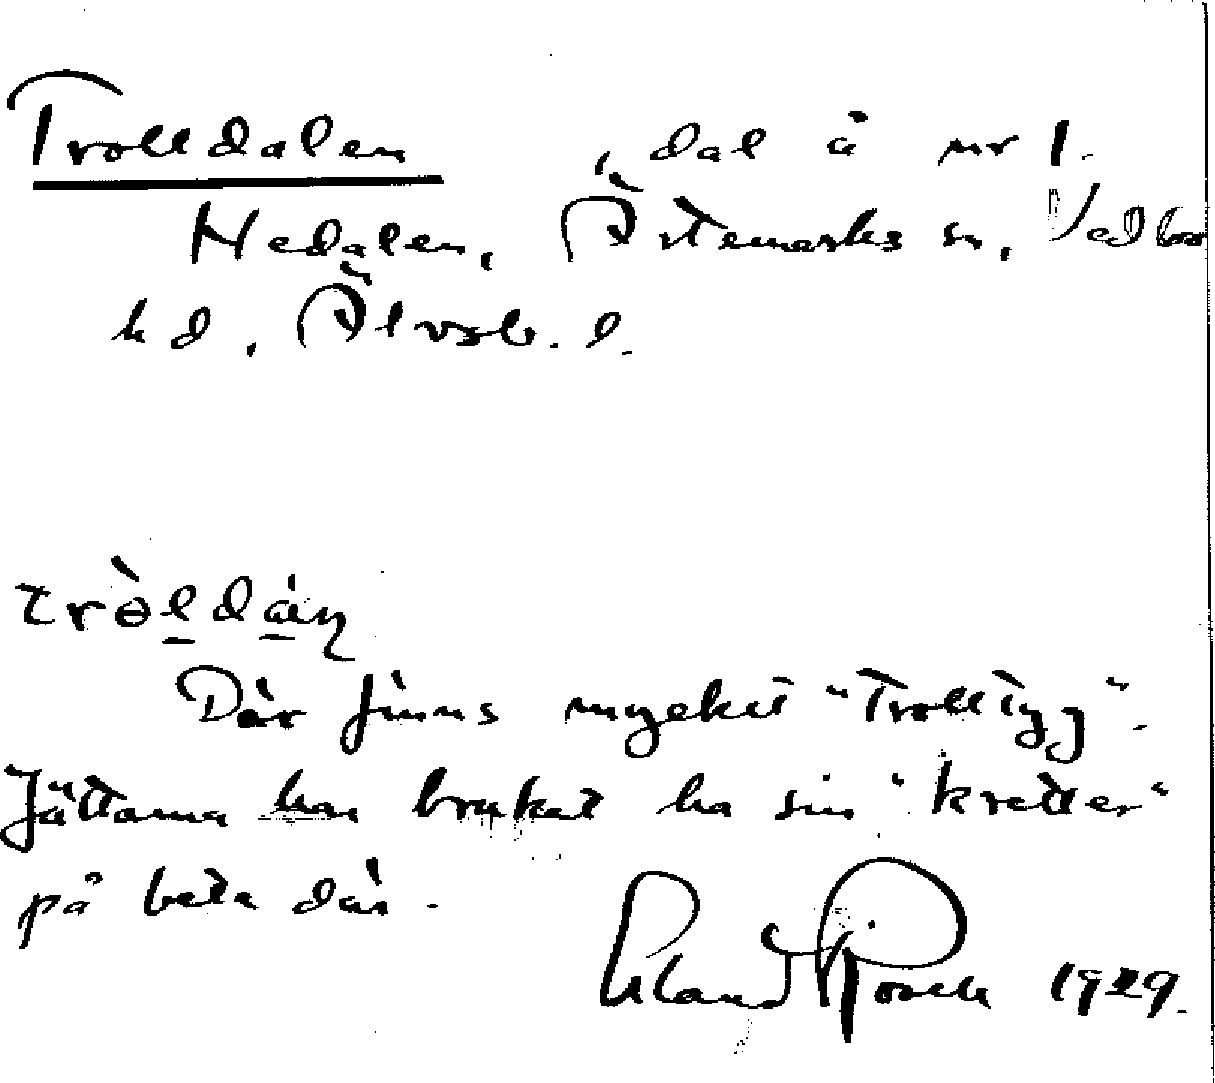 Trolldalen, dal å nr 1.
Nedalen, Ärtemarks sn, Vedbo
hd, Älvsb. l.
tròldán
Där finns mycket "Trolltyg".
Jättarna har brukat ha sin "kretter"
på bete där.
Rosell 1929.